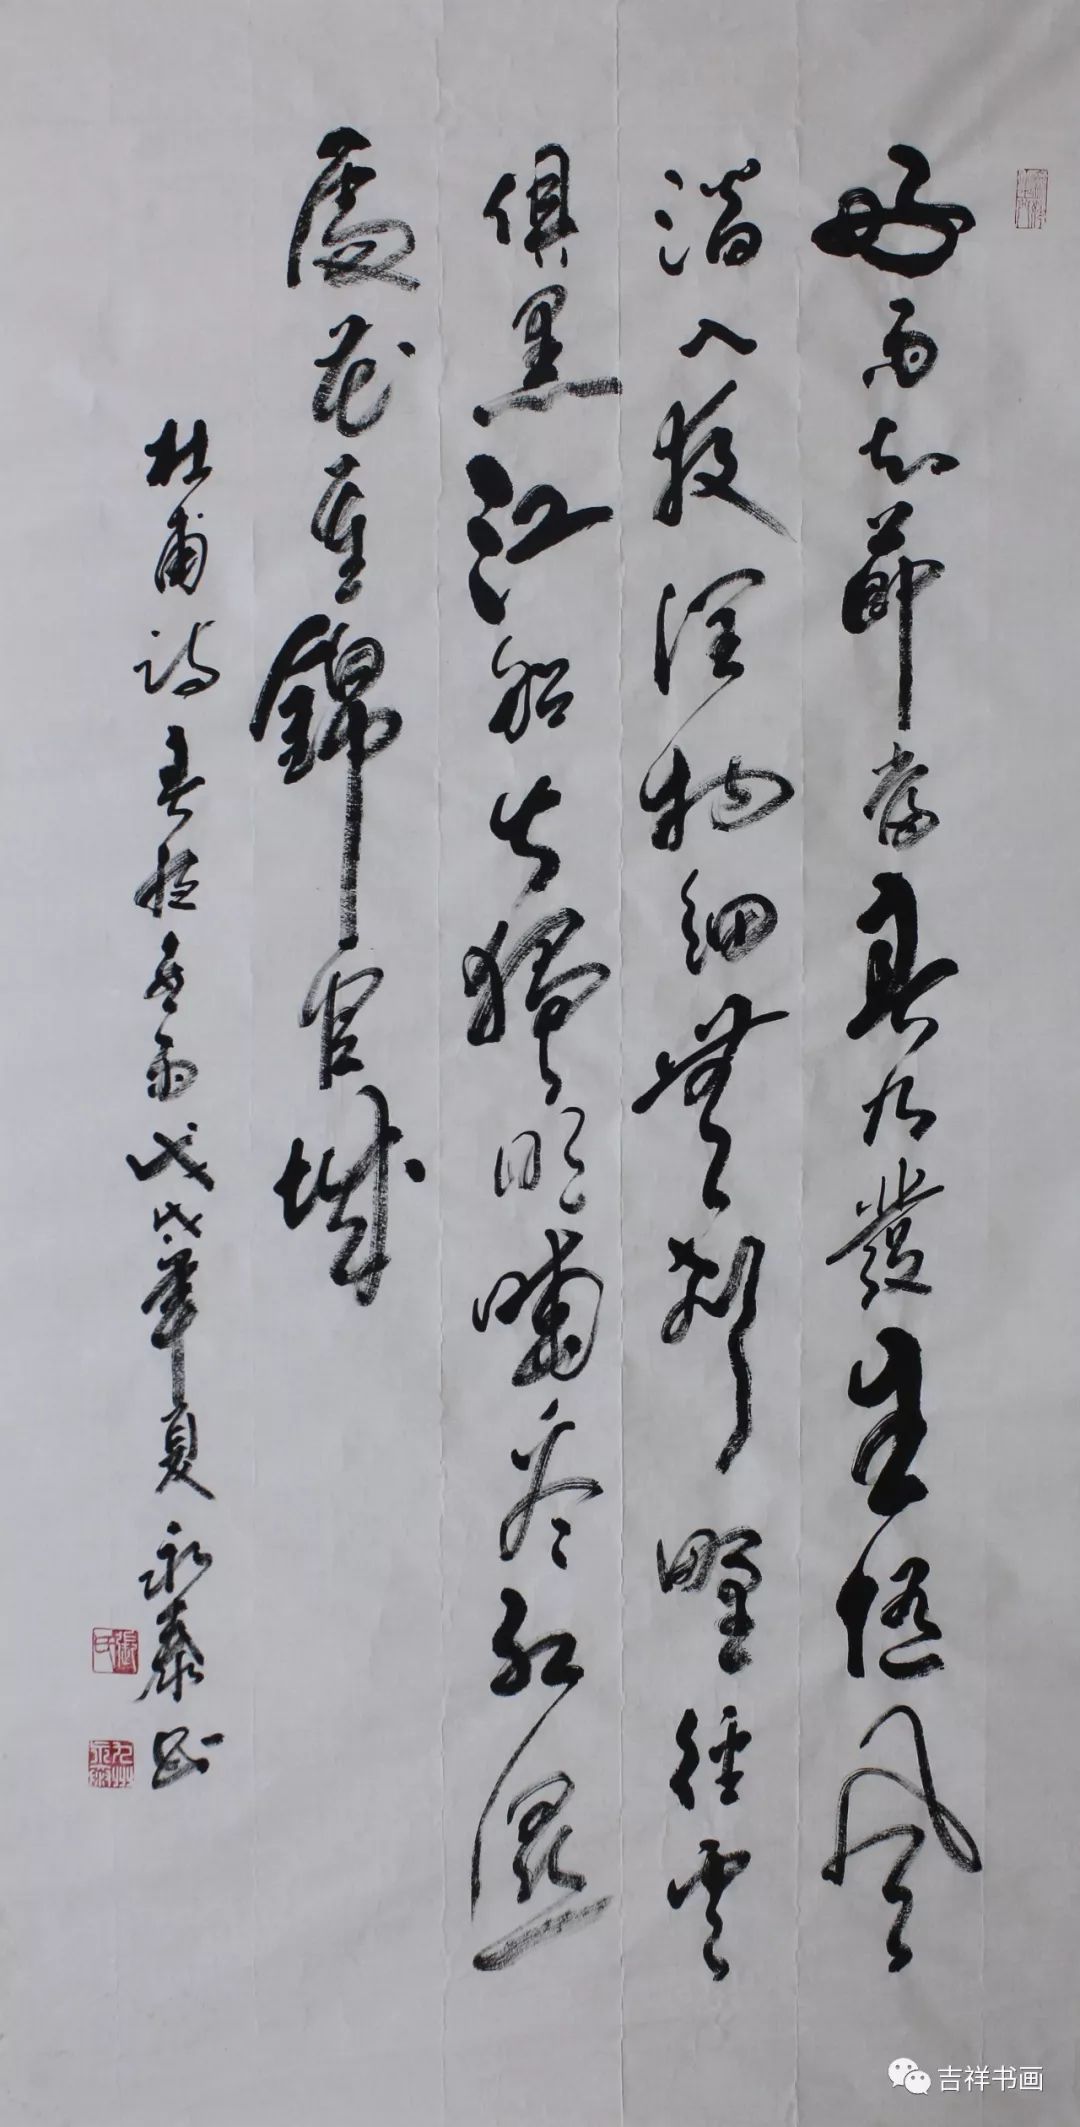 好雨知節當春乃發生随風
潛入夜潤物細無聲野徑雲
俱黑江船火獨明曉看紅濕
處花重錦官城
杜甫詩春夜喜雨戊戌年夏永泰書
張氏
吉祥书画